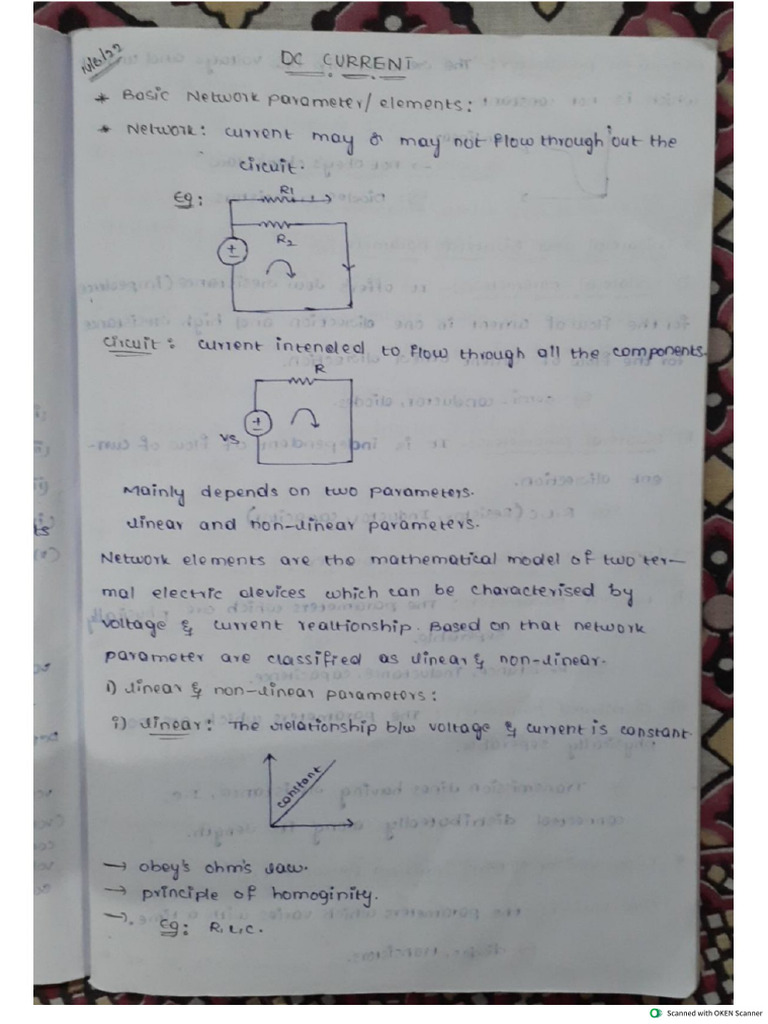 DC CURRENT
* Basic Network parameter/ elements:
* Network: current may & may not flow through out the
circuit.
Eg:
R1
R2
circuit: current intended to flow through all the components.
R
VS
Mainly depends on two parameters.
linear and non-linear parameters.
Network elements are the mathematical model of two ter-
mal electric devices which can be characterised by
voltage & current realtionship. Based on that network
parameter are classified as linear & non-linear.
1) linear & non-linear parameters:
i) linear: The relationship b/w voltage & current is constant.
constant
→ obey's ohm's law.
→ principle of homoginity.
→. Eg: R, L, C.
Scanned with OKEN Scanner